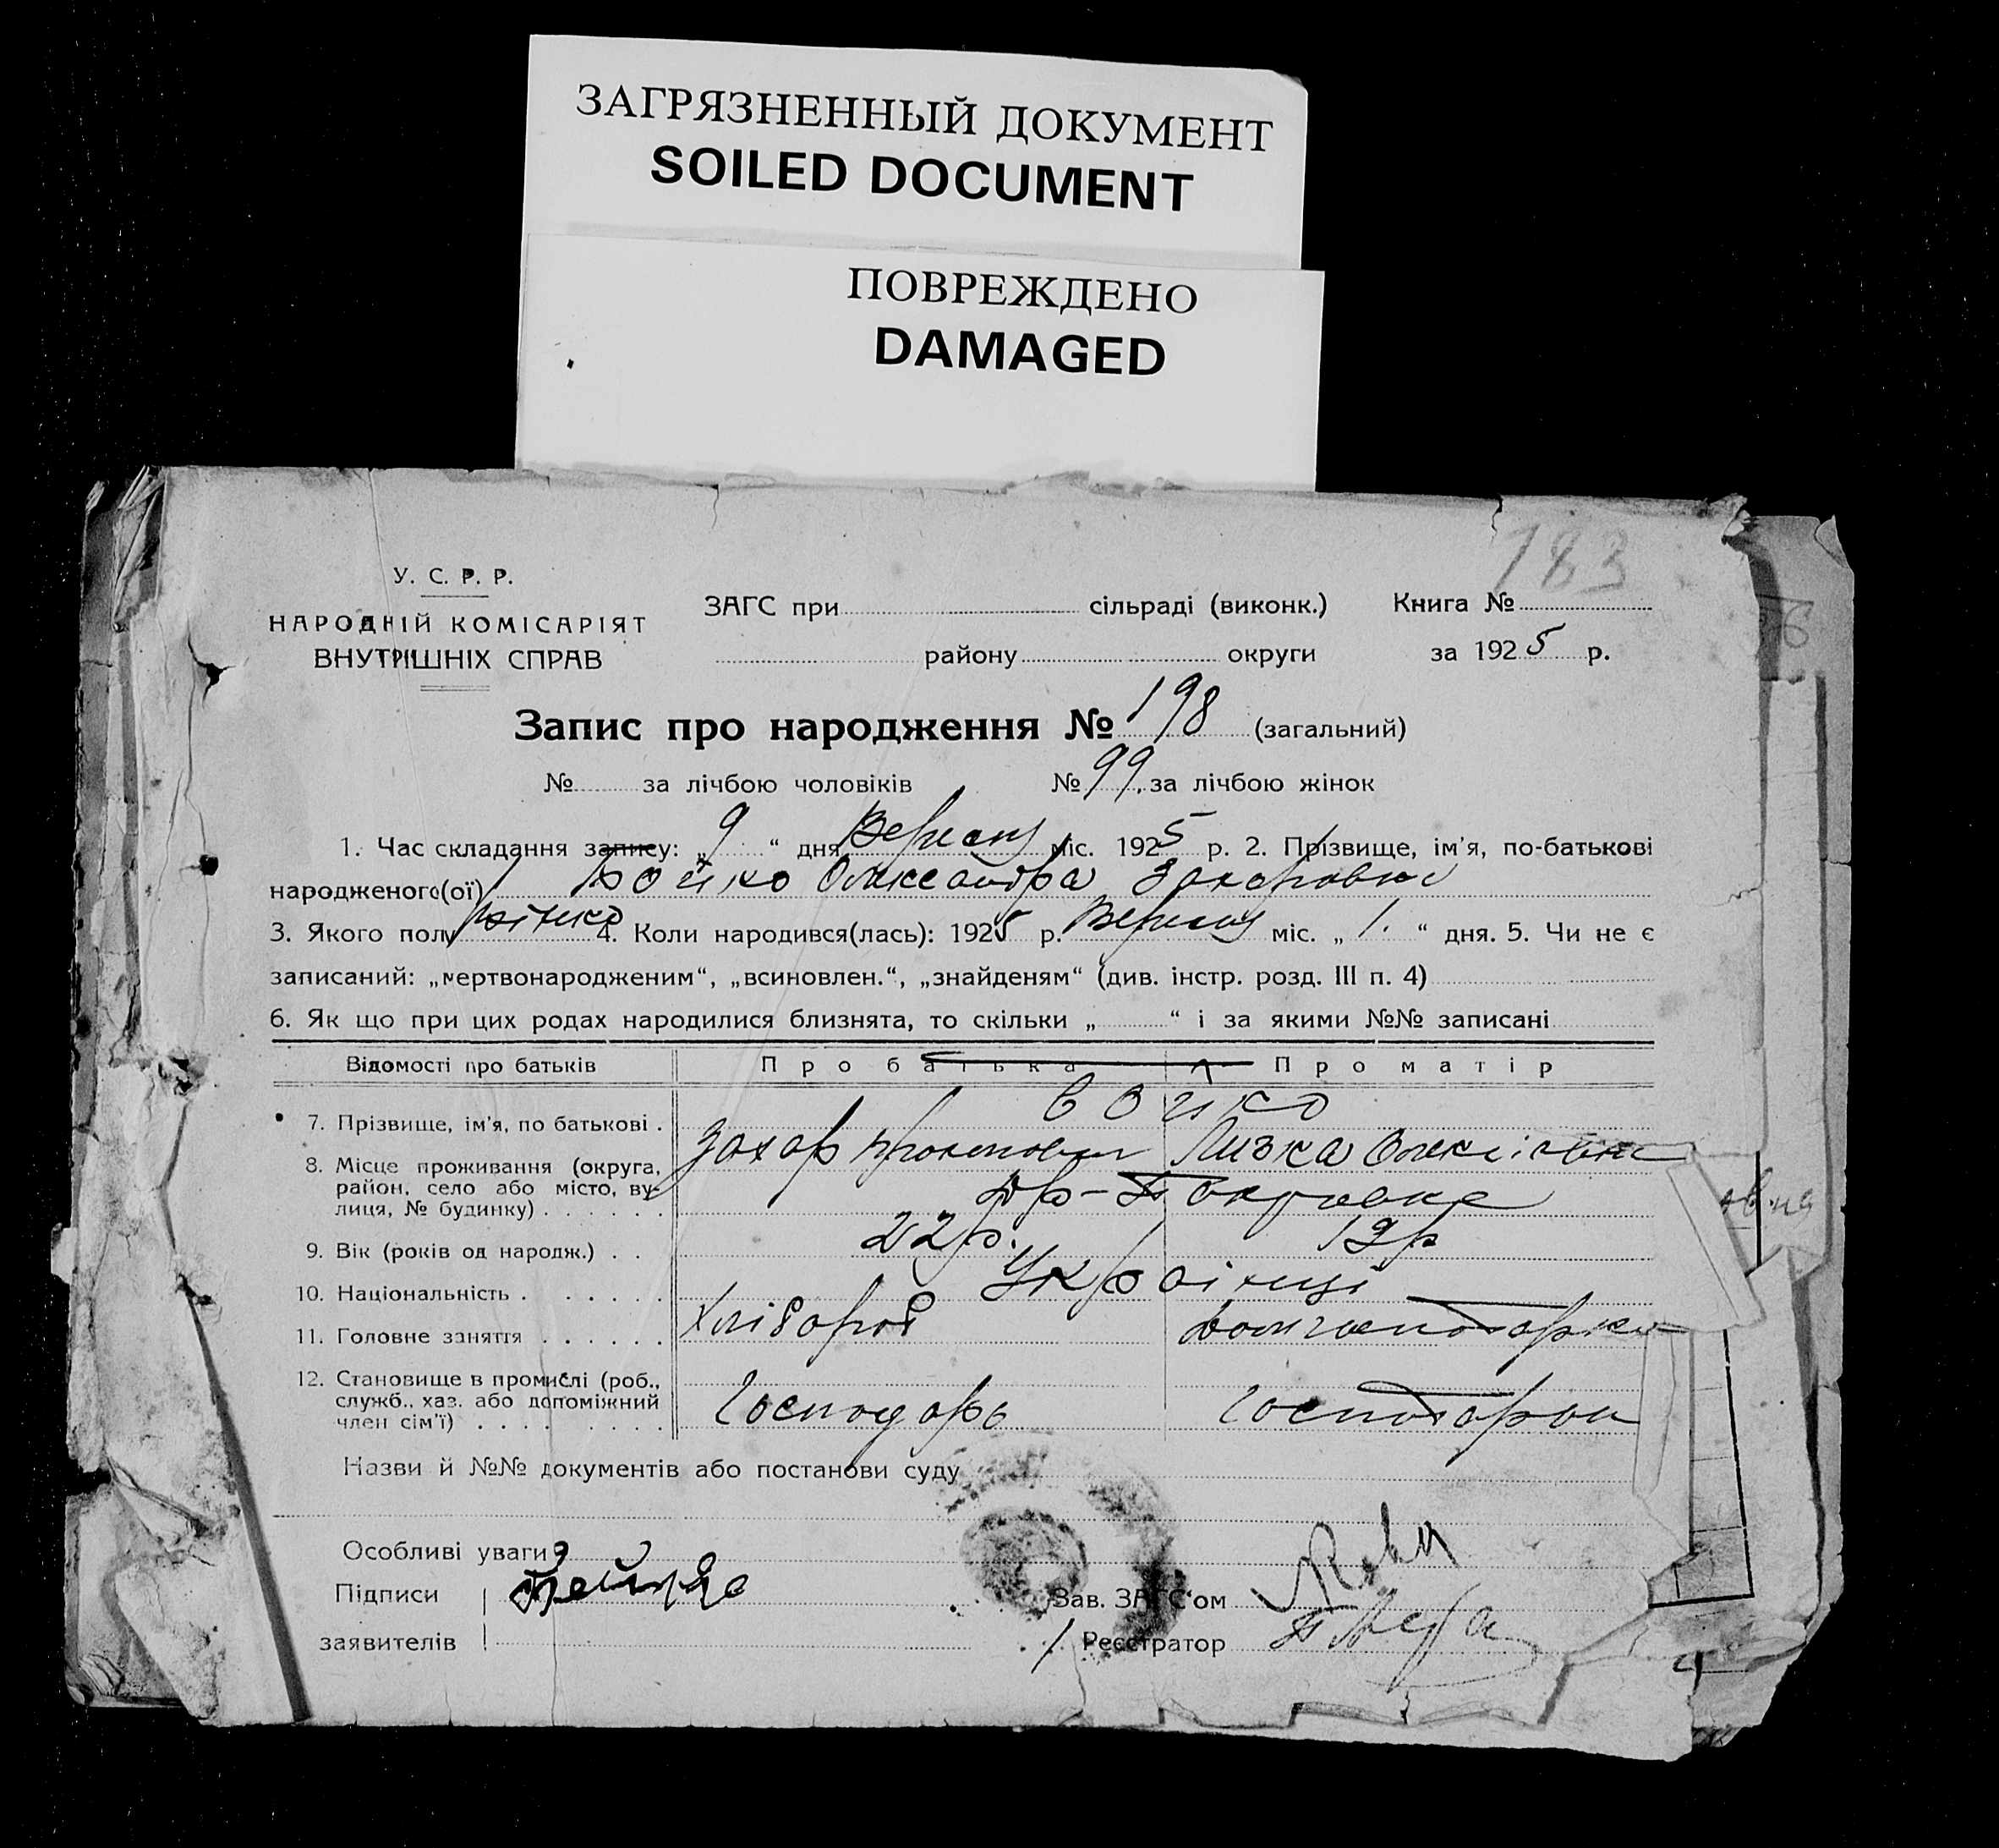 ЗАГРЯЗНЕННЫЙ ДОКУМЕНТ
SOILED DOCUMENT
ПОВРЕЖДЕНО
DAMAGED
183
У. С. Р. Р.
НАРОДНІЙ КОМІСАРІЯТ
ВНУТРІШНІХ СПРАВ
ЗАГС при сільраді (виконк.) Книга №
району округи за 1925 р.
Запис про народження № 198 (загальний)
№ за лічбою чоловіків № 99 за лічбою жінок
1. Час складання запису: „9“ дня Вересня міс. 1925 р. 2. Прізвище, ім'я, по-батькові
народженого(ої) Бойко Олександра Захаровна
3. Якого полу жінко 4. Коли народився(лась): 1925 р. Вересня міс. „1.“ дня. 5. Чи не є
записаний: „мертвонародженим“, „всиновлен.“, „знайденям“ (див. інстр. розд. III п. 4)
6. Як що при цих родах народилися близнята, то скільки „ “ і за якими №№ записані
Відомості про батьків Про батька Про матір
7. Прізвище, ім'я, по батькові . Бойко
Захар Лизка
8. Місце проживання (округа, район, село або місто, вулиця, № будинку) . . . . . .
9. Вік (років од народж.) . . 22р. 19р
10. Національність . . . . . . Українці
11. Головне заняття . . . . . . Хлібороб Домгосподарка
12. Становище в промислі (роб., служб., хаз. або допоміжний член сім'ї) . . . . . . . . Господарь Господарка
Назви й №№ документів або постанови суду
Особливі уваги
Підписи
заявителів
Зав. ЗАГС'ом
Реєстратор